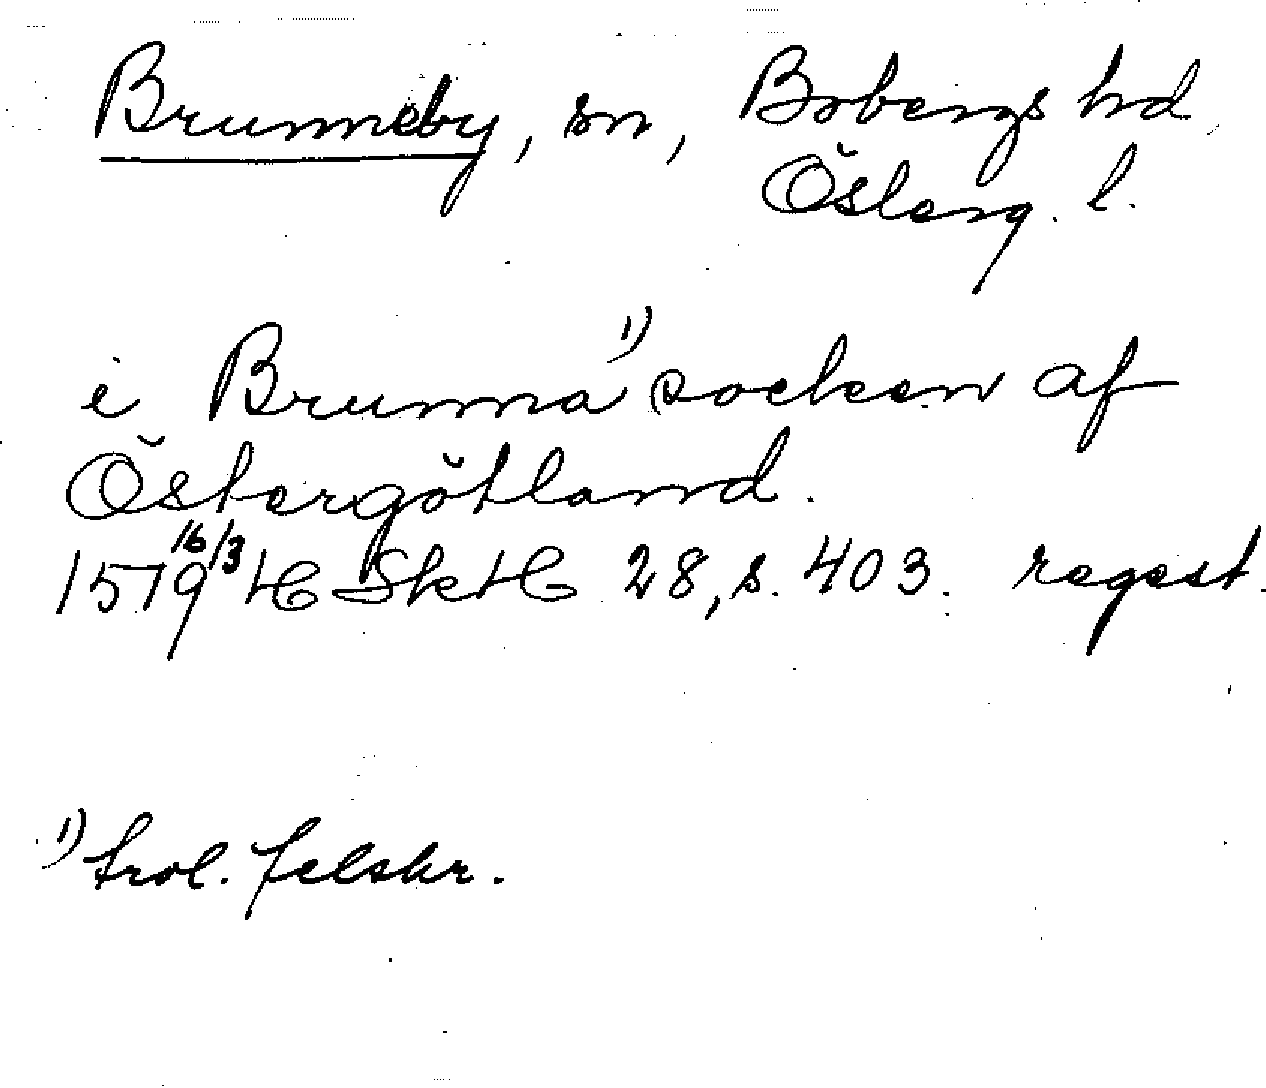 Brunneby, sn, Bobergs hd,
Österg. l.
i Brunna¹⁾ socken af
Östergötland.
1579 16/3 HSkH 28, s. 403. regest.
¹⁾ trol. felskr.